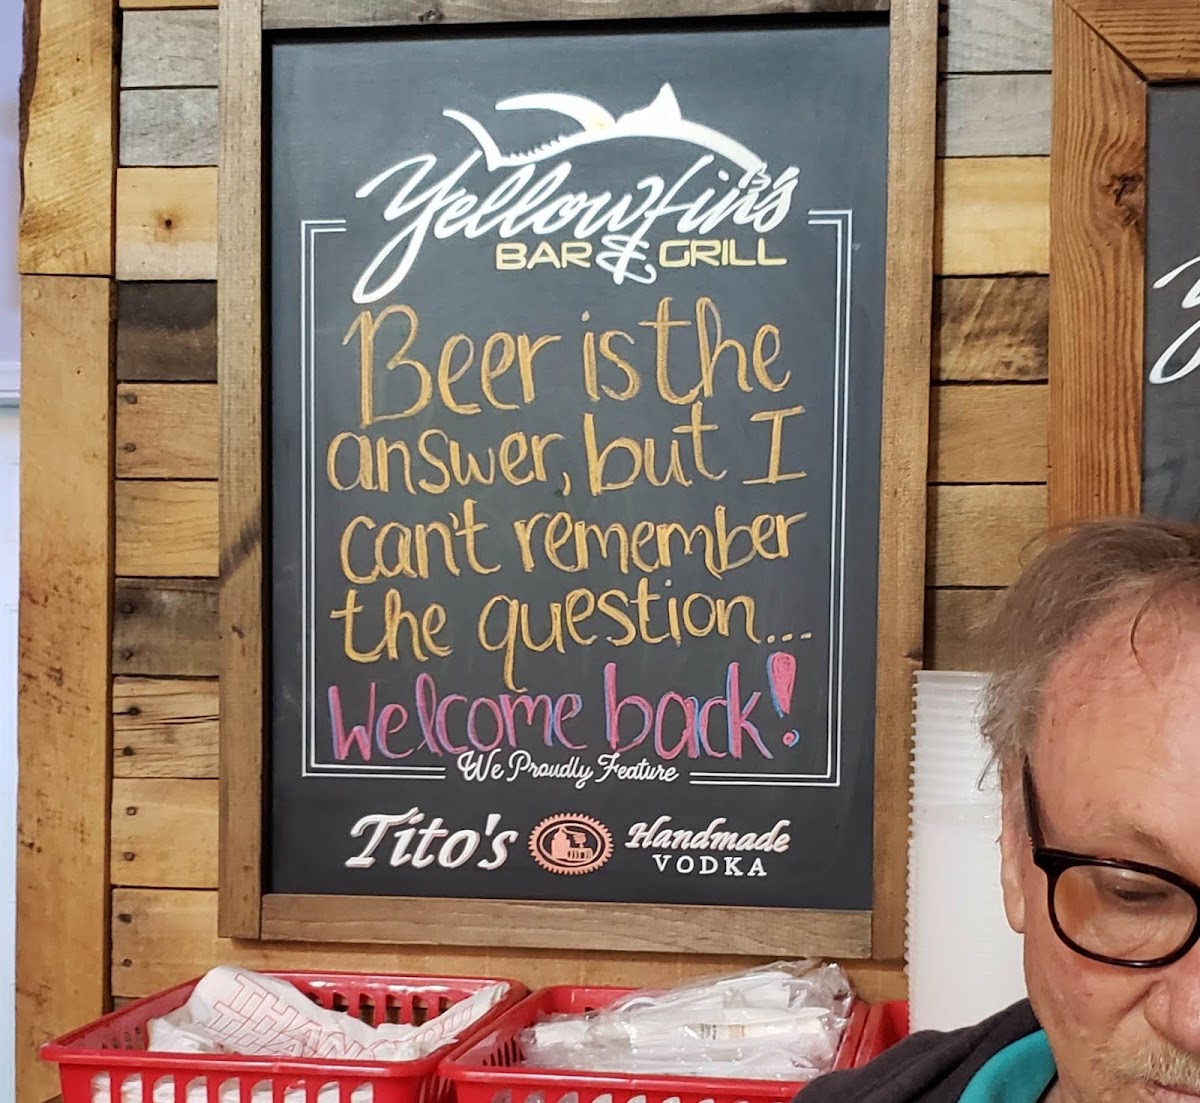 Yellowfin's
BAR & GRILL
Beer is the
answer, but I
can't remember
the question...
Welcome back!
We Proudly Feature
Tito's Handmade
VODKA
THANK YOU